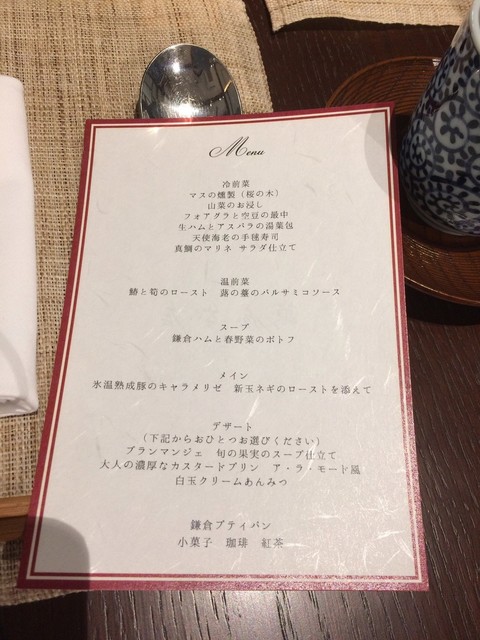 Menu
冷前菜
マスの燻製（桜の木）
山菜のお浸し
フォアグラと空豆の最中
生ハムとアスパラの湯葉包
天使海老の手毬寿司
真鯛のマリネ サラダ仕立て
温前菜
鰆と筍のロースト 蕗の薹のバルサミコソース
スープ
鎌倉ハムと春野菜のポトフ
メイン
氷温熟成豚のキャラメリゼ 新玉ネギのローストを添えて
デザート
（下記からおひとつお選びください）
ブランマンジェ 旬の果実のスープ仕立て
大人の濃厚なカスタードプリン ア・ラ・モード風
白玉クリームあんみつ
鎌倉プティパン
小菓子 珈琲 紅茶